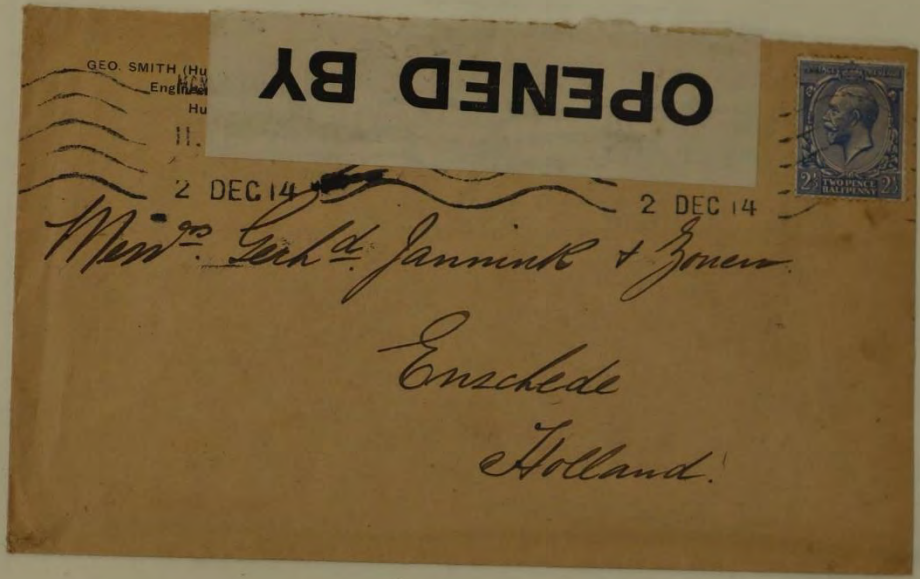 GEO. SMITH (Hu
Engineer
Hu
OPENED BY
11.
2 DEC 14
2 DEC 14
TWO PENCE
HALFPENNY
2½ 2½
Messrs. Gerhd. Jannink & Zonen.
Enschede
Holland.